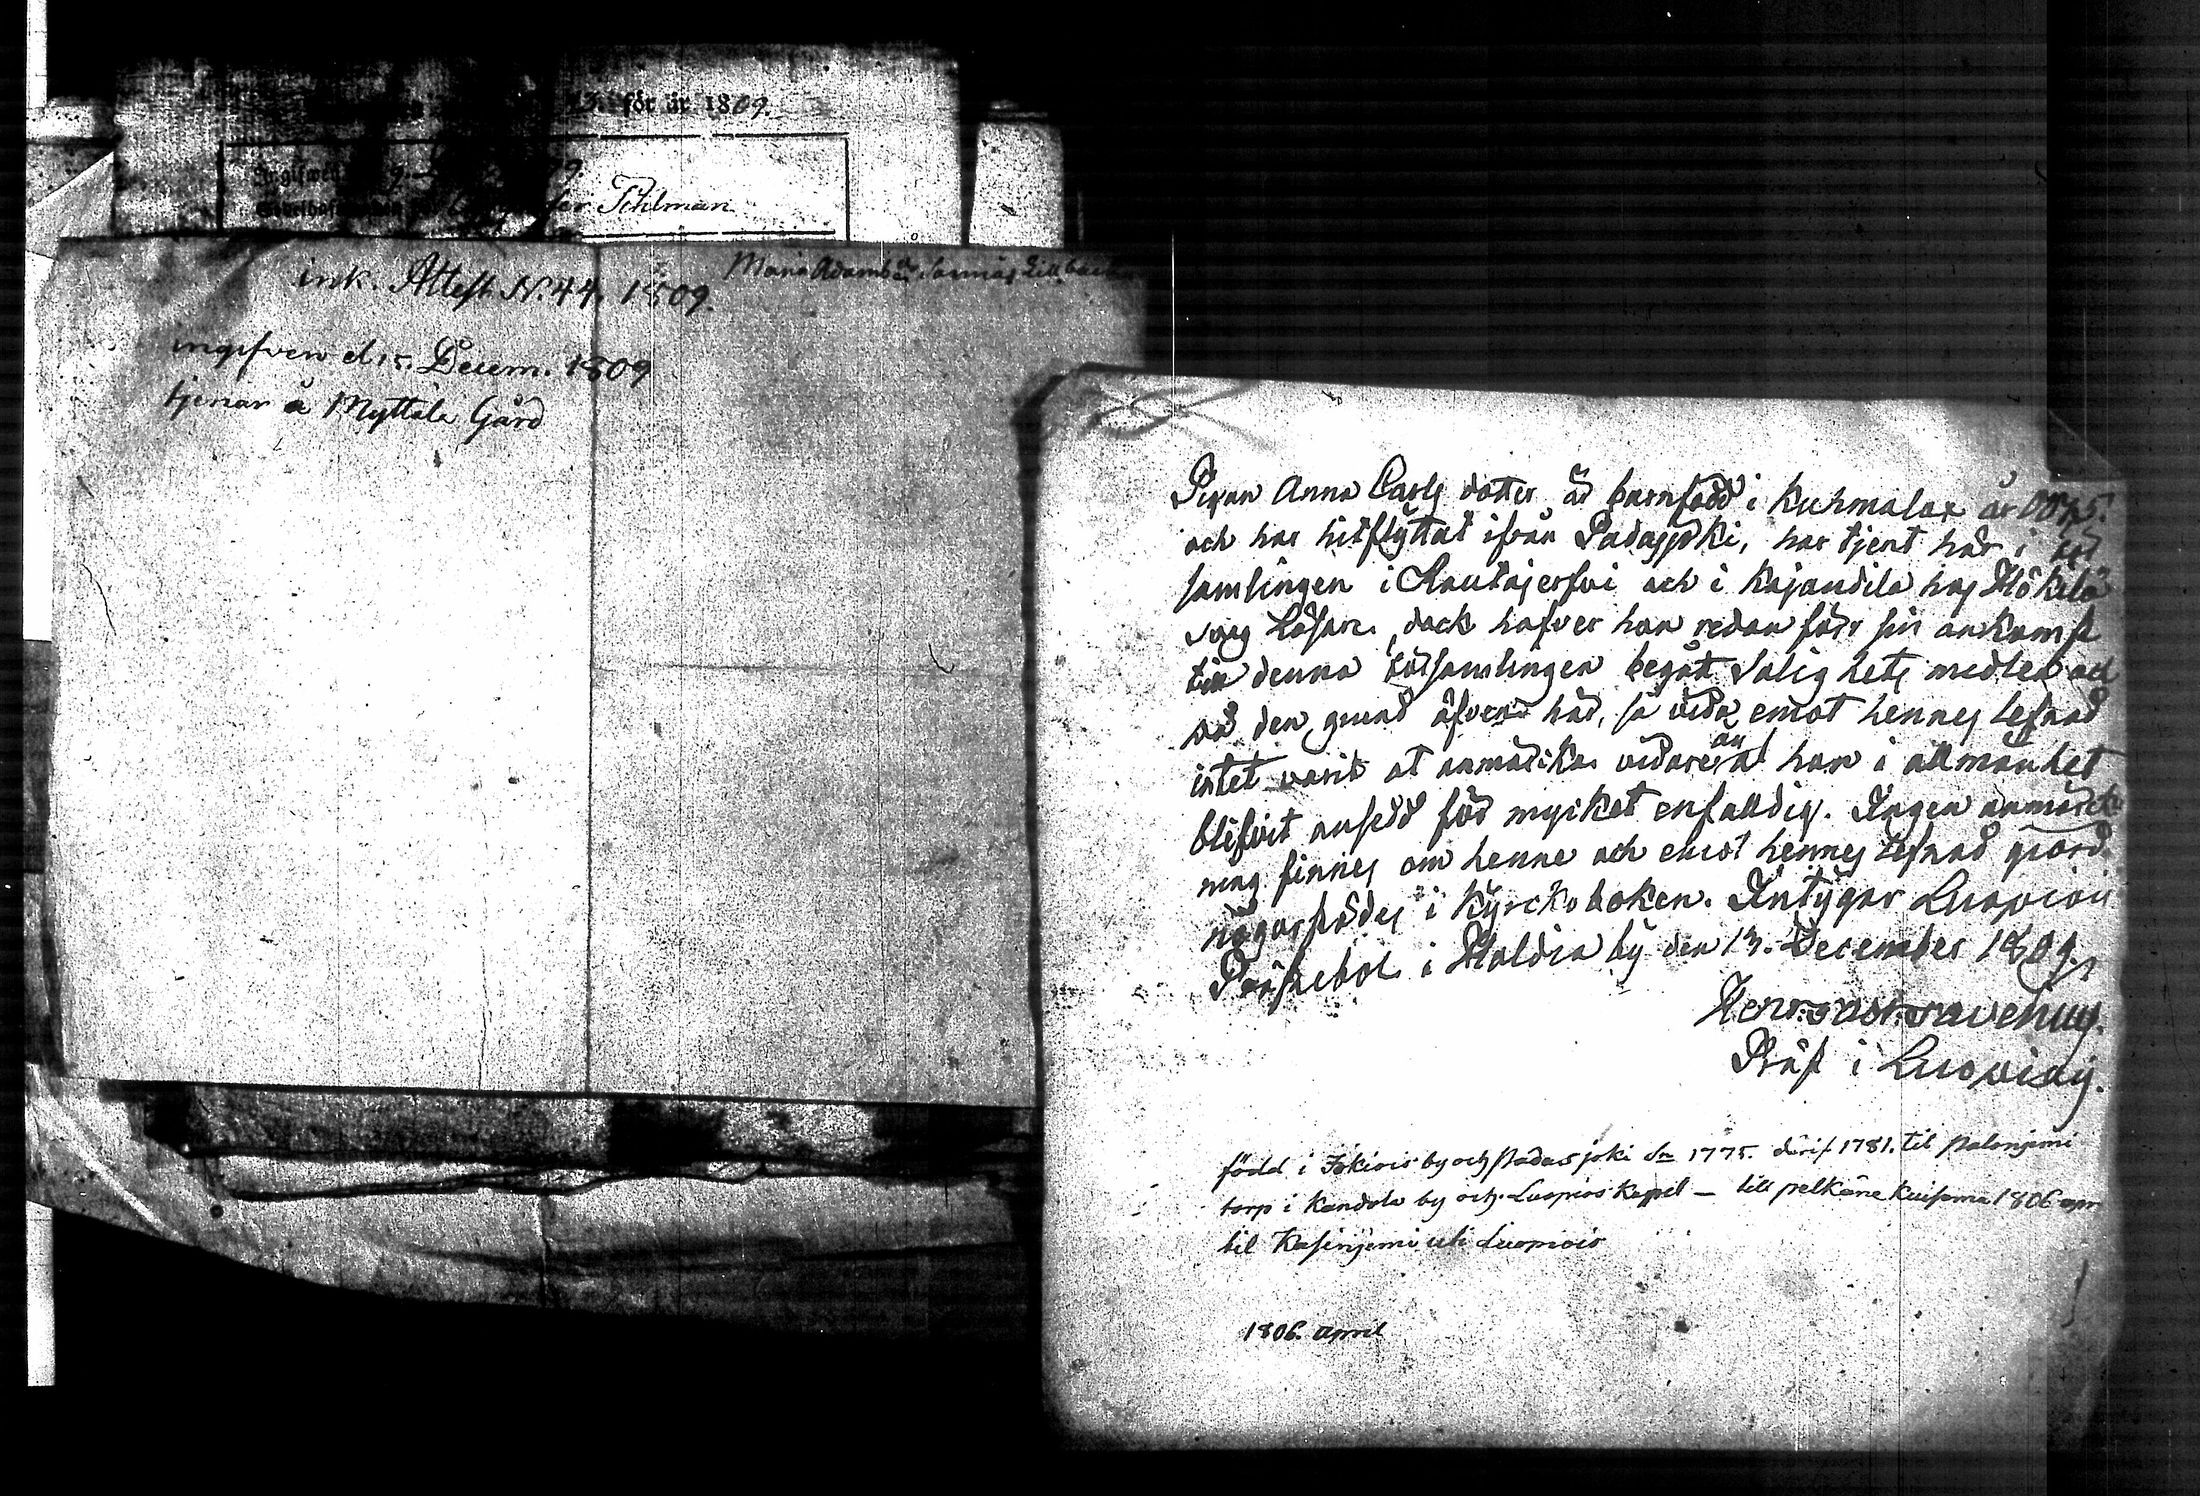 43. för år 1809.
Ingifwed 9.
Pihlman
ink. Attest N. 44. 1809.
Maria Adams dr
ingifven d 15. Decem. 1809
tjenar å Myttälä Gård
Pigan Anna Carls dotter är barnfödd i Kuhmalax år
och har hitflyttat ifrån Padasjoki, har tjent här i för
samlingen i Rautajerfvi och i Kajandila hos
dock hafver hon redan förr sin ankomst
till denna församlingen begåt Salighets medlen och
på den grund äfven här, så vida emot hennes lefnad
intet varit at anmärka vidare än at hon i allmänhet
blifvit ansedd för mycket enfaldig. Ingen anmärk
ning finnes om henne och emot hennes lefnad giord
någorstädes i Kyrcko boken. Intygar Luopiois
Prästebol i Haldia by den 13. December 1809.
Präst i Luopiois.
född i by och Padasjoki Sn 1775. därif. 1781. til Palonjemi
torp i Kandola by och Luopiois Kapel — till pelkäne Kuisema 1806 apr
til Kasinjemi uti Luopiois
1806. april